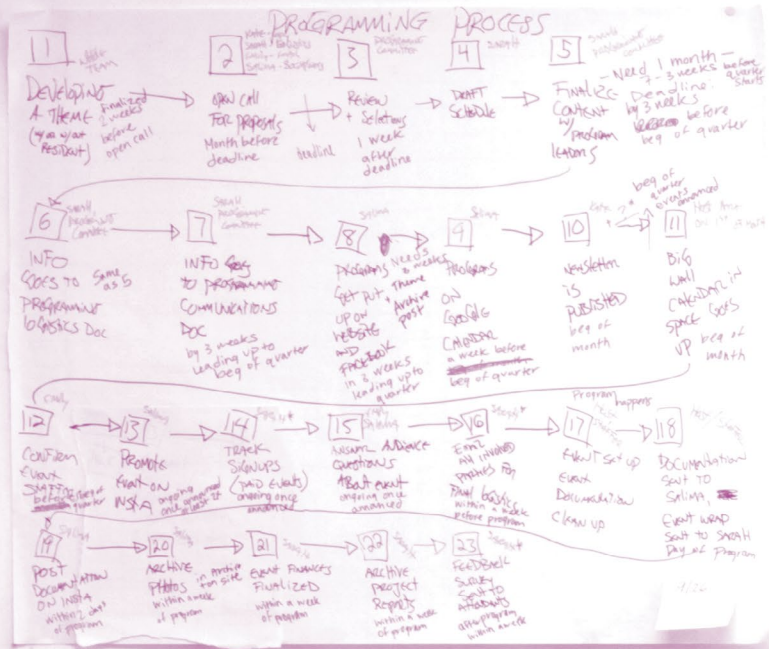 PROGRAMMING PROCESS
1
DEVELOPING
A THEME
(w/ or w/out
RESIDENT)
Finalized
2 weeks
before
open call
2
OPEN CALL
FOR PROPOSALS
Month before
deadline
3
PROGRAMMING
Committee
REVIEW
+ Selections
1 week
after
deadline
deadline
4
SARAH
DRAFT
SCHEDULE
5
SARAH
PROGRAMMING
Committee
FINALIZE
CONTENT
W/ PROGRAM
LEADERS
- Need 1 month -
3 weeks before
quarter
starts
Deadline.
by 3 weeks
before
beg of quarter
6
SARAH
INFO
GOES TO
PROGRAMMING
LOGISTICS DOC
Same
as 5
7
SARAH
INFO GOES
TO PROGRAMMING
COMMUNICATIONS
DOC
by 3 weeks
leading up to
beg of quarter
8
PROGRAMS
GET PUT
UP ON
WEBSITE
AND
FACEBOOK
in 2 weeks
leading up to
quarter
Needs
Theme
+ Archive
post
9
Selima
PROGRAMS
ON
GOOGLE
CALENDAR
a week before
beg of quarter
10
Kate
NEWSLETTER
IS
PUBLISHED
beg of
month
beg of
quarter
events
announced
11
BIG
WALL
CALENDAR IN
SPACE GOES
UP
beg of
month
12
Emily
CONFIRM
EVENT
STAFFING
before beg of
quarter
13
Selima
PROMOTE
EVENT ON
INSTA
ongoing
once announced
14
TRACK
SIGNUPS
(PAID EVENTS)
ongoing once
announced
15
ANSWER AUDIENCE
QUESTIONS
ABOUT EVENT
ongoing once
announced
16
EMAIL
ALL INVOLVED
PARTIES FOR
FINAL LOGISTICS
within a week
before program
Program
happens
17
EVENT SET UP
EVENT
DOCUMENTATION
CLEAN UP
18
DOCUMENTATION
SENT TO
SELIMA,
EVENT WRAP
SENT TO SARAH
Day of Program
19
Selima
POST
DOCUMENTATION
ON INSTA
within 2 days
of program
20
Selima
ARCHIVE
PHOTOS
in Archive
on site
within a week
of program
21
EVENT FINANCES
FINALIZED
within a week
of program
22
ARCHIVE
PROJECT
REPORTS
within a week
of program
23
FEEDBACK
SURVEY
SENT TO
ATTENDANTS
after program
within a week